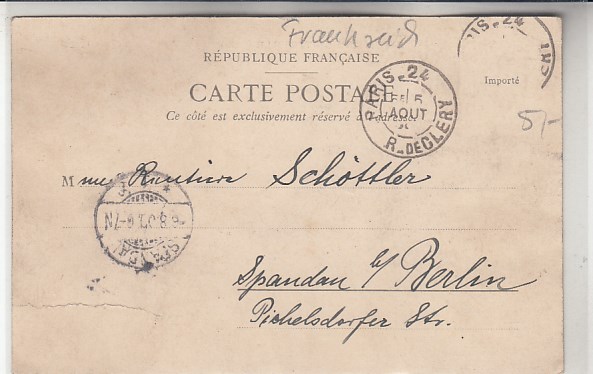 Frankreich
RÉPUBLIQUE FRANÇAISE
CARTE POSTALE
Ce côté est exclusivement réservé à l'adresse.
Importé
PARIS . 24
5
AOUT
R. DE CLERY
5/-
Mme Rentiere Schöttler
Spandau b/ Berlin
Pichelsdorfer Str.